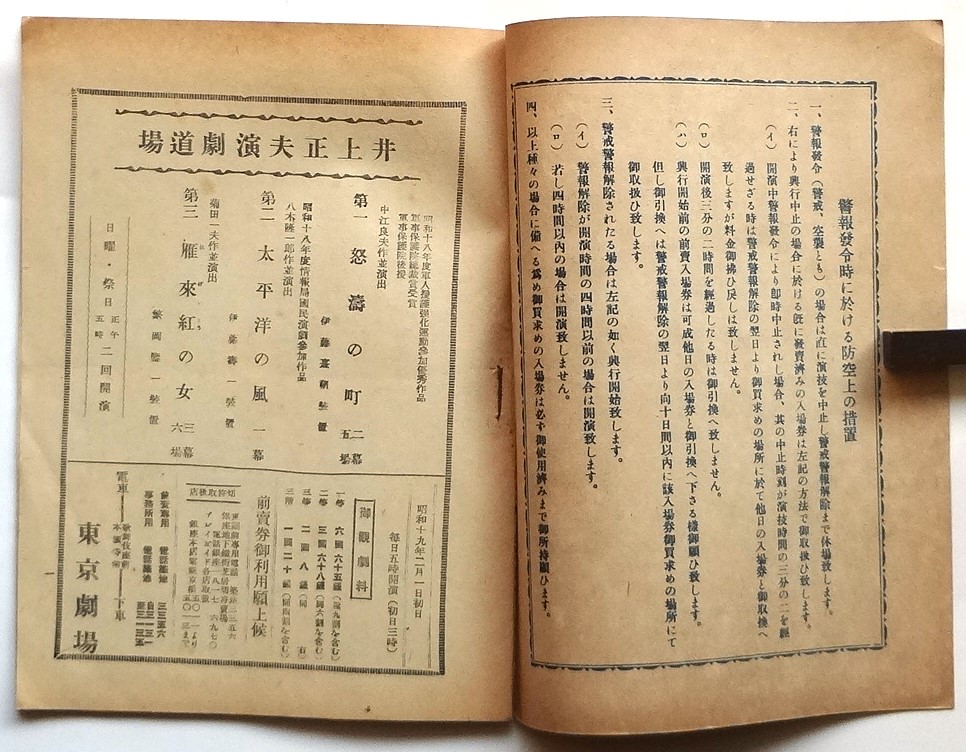 警報發令時に於ける防空上の措置
一、警報發令（警戒、空襲とも）の場合は直に演技を中止し警戒警報解除まで休場致します。
二、右により興行中止の場合に於ける旣に發賣濟みの入場券は左記の方法で御取扱ひ致します。
（イ）開演中警報發令により卽時中止されし場合、其の中止時刻が演技時間の三分の二を經
過せざる時は警戒警報解除の翌日より御買求めの場所に於て他日の入場券と御取換へ
致しますが料金御拂ひ戾しは致しません。
（ロ）開演後三分の二時間を經過したる時は御引換へ致しません。
（ハ）興行開始前の前賣入場券は可成他日の入場券と御引換へ下さる樣御願ひ致します。
但し御引換へは警戒警報解除の翌日より向十日間以內に該入場券御買求めの場所にて
御取扱ひ致します。
三、警戒警報解除されたる場合は左記の如く興行開始致します。
（イ）警報解除が開演時間の四時間以前の場合は開演致します。
（ロ）若し四時間以內の場合は開演致しません。
四、以上種々の場合に備へる爲め御買求めの入場券は必ず御使用濟みまで御所持願ひます。
井上正夫演劇道場
昭和十八年度軍人援護强化運動參加優秀作品
軍事保護院總裁賞受賞
軍事保護院後援
中江良夫作並演出
第一 怒濤の町 二幕五場
伊藤熹朔裝置
昭和十八年度情報局國民演劇參加作品
八木隆一郎作並演出
第二 太平洋の風 一幕
伊藤壽一裝置
菊田一夫作並演出
第三 雁來紅の女 三幕六場
繁岡鑒一裝置
日曜・祭日 正午 五時 二回開演
昭和十九年二月一日初日
每日五時開演（初日三時）
御觀劇料
一等 六圓六十五錢（稅九割を含む）
二等 三圓六十八錢（同六割を含む）
三等 二圓八錢（同 右）
三階 一圓二十錢（同四割を含む）
前賣券御利用願上候
東京劇場